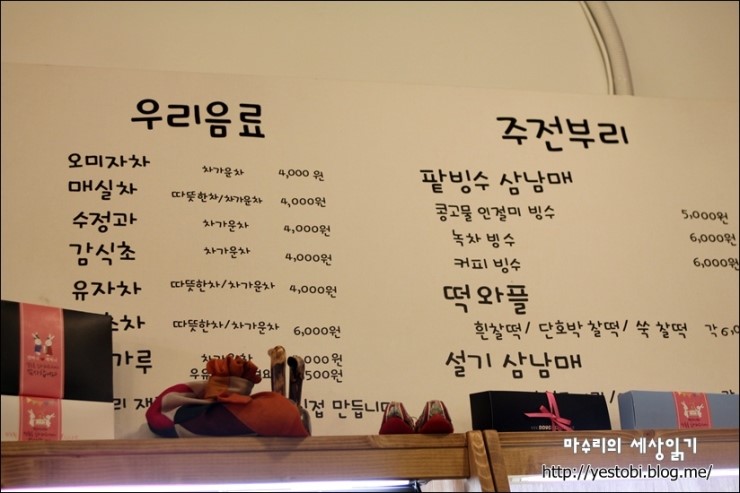 우리음료
오미자차 차가운차 4,000 원
매실차 따뜻한차/차가운차 4,000원
수정과 차가운차 4,000원
감식초 차가운차 4,000원
유자차 따뜻한차/차가운차 4,000원
차 따뜻한차/차가운차 6,000원
가루 차가운차
우유
만듭니다
주전부리
팥빙수 삼남매
콩고물 인절미 빙수 5,000원
녹차 빙수 6,000원
커피 빙수 6,000원
떡 와플
흰찰떡/ 단호박 찰떡/ 쑥 찰떡 각6,0
설기 삼남매
마수리의 세상읽기
http://yestobi.blog.me/